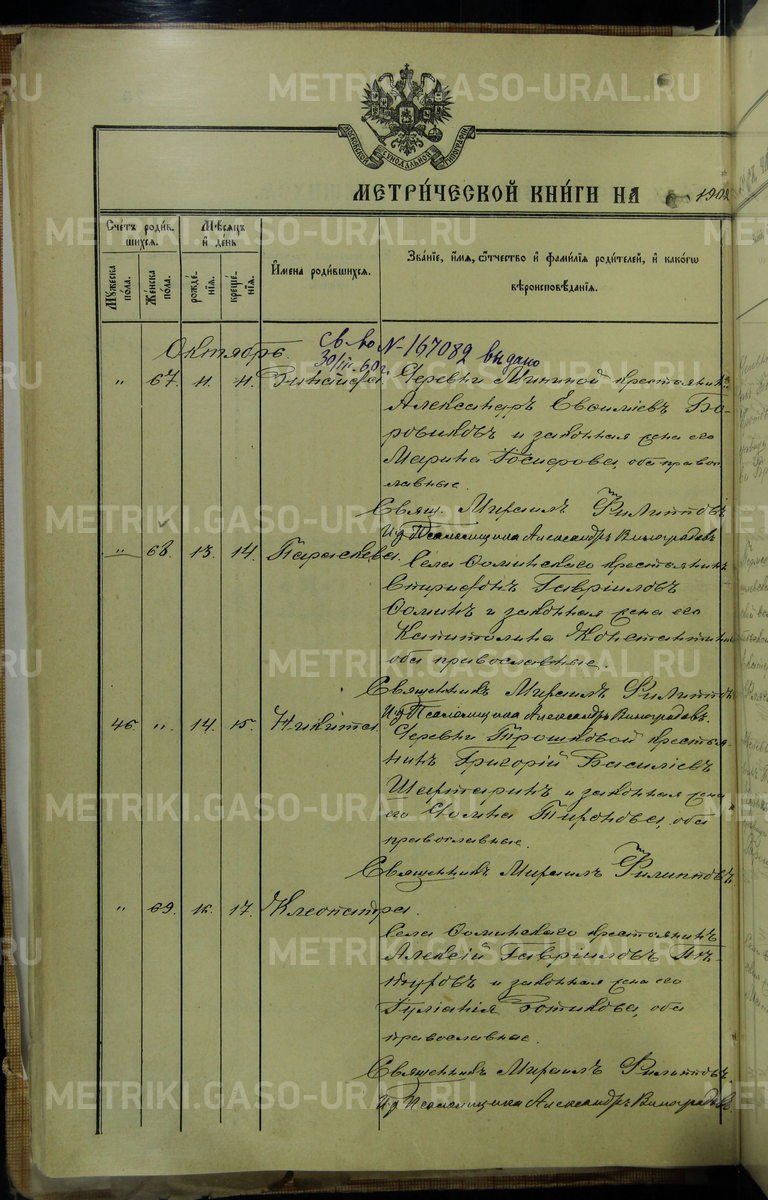 МЕТРИ́ЧЕСКОЙ КНИ́ГИ НА 1902
Счетъ роди́вшихся.
Мѣсяцъ и́ де́нь
Му́жеска по́ла.
Же́нска по́ла.
рожде́нїя.
креще́нїя.
И́мена роди́вшихся.
Зва́нїе, и́мя, ѻ́тчество и́ фами́лїя роди́телей, и́ како́гѡ вѣроисповѣ́данїя.
Октябрь.
Св-во N-167082 выдано
30/III-60 г.
" 67. 11. 11. Зинаида.
Деревни Мининой крестьянинъ
Александръ Евѳиміевъ Бо-
ровиковъ и законная жена его
Марина Іосифова, оба право-
славные.
Свящ. Михаилъ Филипповъ
И.д. Псаломщика Александръ Виноградовъ
" 68. 13. 14. Параскева.
Села Ѳоминскаго крестьянинъ
Спиридонъ Гавріиловъ
Ѳоминъ и законная жена его
Капитолина Константинова
оба православные.
Священникъ Михаилъ Филипповъ
И.д. Псаломщика Александръ Виноградовъ.
46. " 14. 15. Никита.
Деревни Трошковой крестья-
нинъ Григорій Василіевъ
и законная жена
его Тиронова, оба
православные.
Священникъ Михаилъ Филипповъ
" 69. 16. 17. Клеопатра.
Села Ѳоминскаго крестьянинъ
Алексій Гавріиловъ
и законная жена его
Іуліанія Фотикова, оба
православные.
Священникъ Михаилъ Филипповъ.
И.д. Псаломщика Александръ Виноградовъ
METRIKI.GASO-URAL.RU